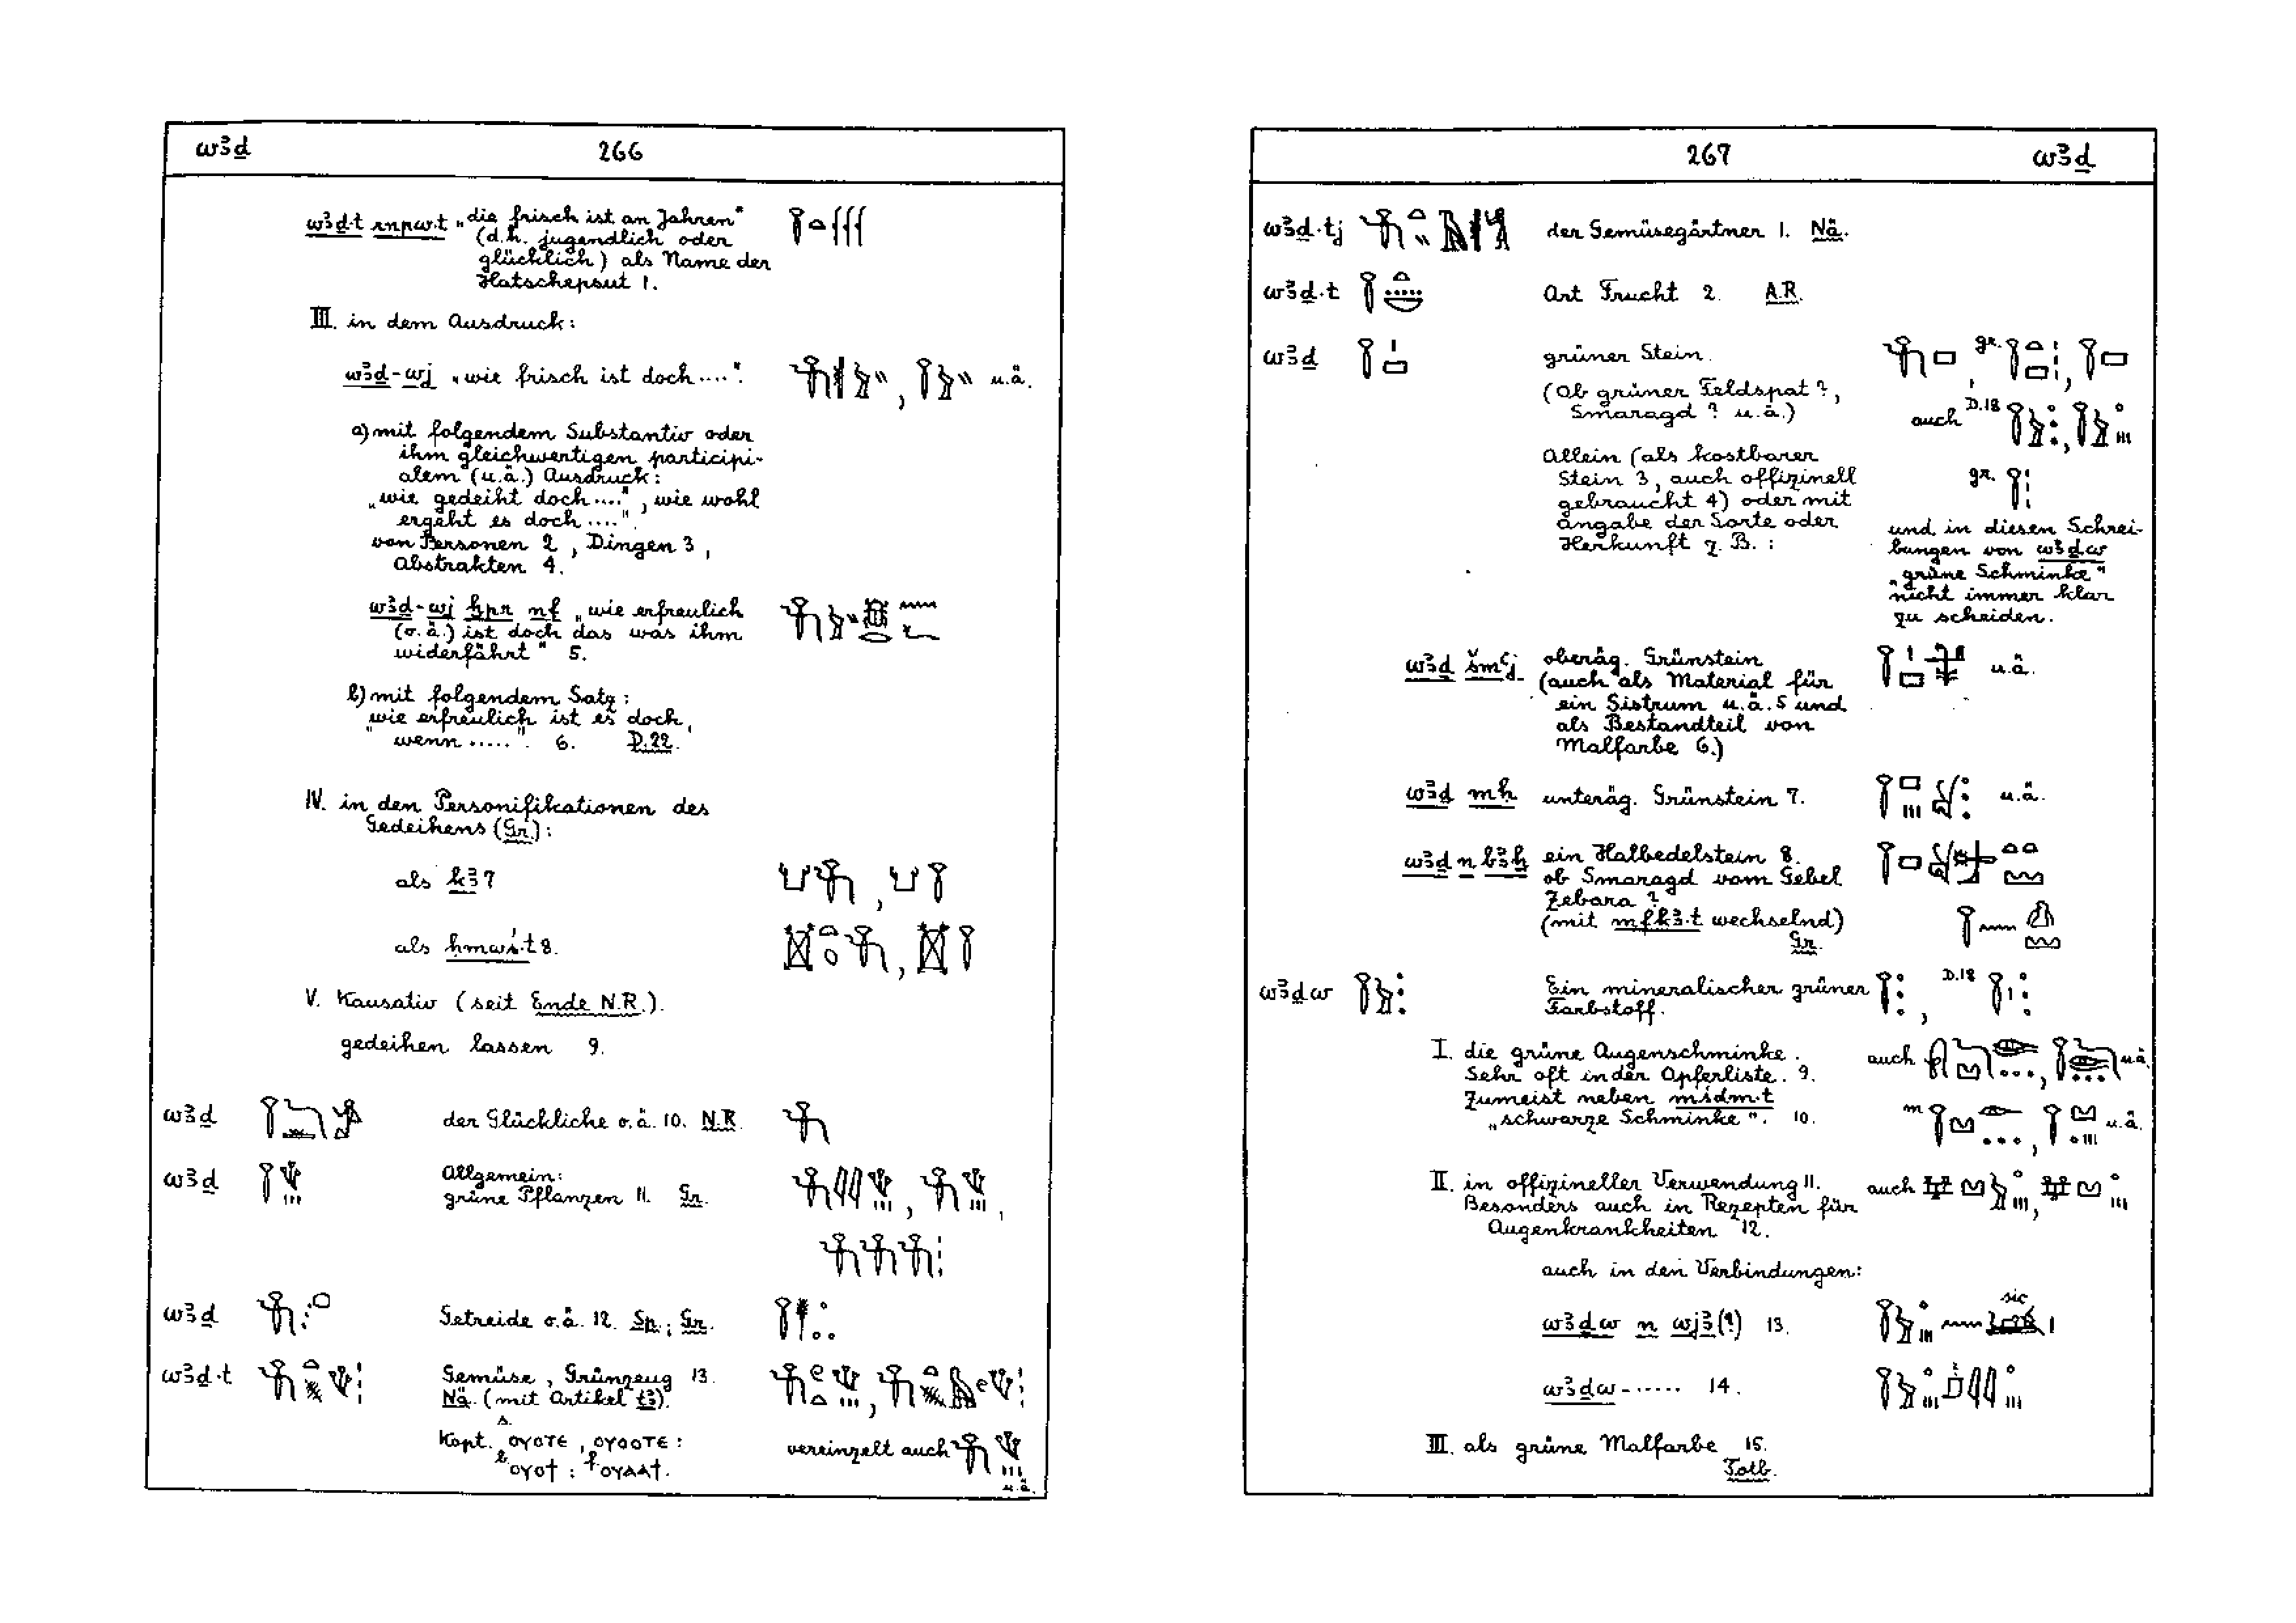 wꜣḏ 266
wꜣḏ·t rnpw·t „die frisch ist an Jahren"
(d.h. jugendlich oder
glücklich) als Name der
Hatschepsut 1.
III. in dem Ausdruck:
wꜣḏ-wj „wie frisch ist doch....". , u.ä.
a) mit folgendem Substantiv oder
ihm gleichwertigen participi-
alem (u.ä.) Ausdruck:
„wie gedeiht doch....", „wie wohl
ergeht es doch....".
von Personen 2, Dingen 3,
Abstrakten 4.
wꜣḏ-wj ḫpr nf „wie erfreulich
(o.ä.) ist doch das was ihm
widerfährt" 5.
b) mit folgendem Satz:
„wie erfreulich ist es doch,
wenn.....". 6. D.22.
IV. in den Personifikationen des
Gedeihens (Gr.):
als kꜣ 7
als ḥmws·t 8.
V. Kausativ (seit Ende N.R.).
gedeihen lassen 9.
wꜣḏ der Glückliche o.ä. 10. N.R.
wꜣḏ Allgemein:
grüne Pflanzen 11. Gr.
wꜣḏ Getreide o.ä. 12. Sp.; Gr.
wꜣḏ·t Gemüse, Grünzeug 13.
Nä. (mit Artikel tꜣ).
Kopt. s. ⲟⲩⲟⲧⲉ, ⲟⲩⲟⲟⲧⲉ: vereinzelt auch
b. ⲟⲩⲟϯ: f. ⲟⲩⲁⲁϯ. u.ä.
267 wꜣḏ
wꜣḏ·tj der Gemüsegärtner 1. Nä.
wꜣḏ·t Art Frucht 2. A.R.
wꜣḏ grüner Stein. gr.
(Ob grüner Feldspat?,
Smaragd? u.ä.) auch D.18
Allein (als kostbarer
Stein 3, auch offizinell gr.
gebraucht 4) oder mit
Angabe der Sorte oder
Herkunft z.B.:
und in diesen Schrei-
bungen von wꜣḏw
„grüne Schminke"
nicht immer klar
zu scheiden.
wꜣḏ šmꜥj oberäg. Grünstein u.ä.
(auch als Material für
ein Sistrum u.ä. 5 und
als Bestandteil von
Malfarbe 6.)
wꜣḏ mḥ unteräg. Grünstein 7. u.ä.
wꜣḏ n bꜣḫ ein Halbedelstein 8.
ob Smaragd vom Gebel
Zebara?
(mit mfkꜣ·t wechselnd)
Gr.
wꜣḏw Ein mineralischer grüner D.18
Farbstoff.
I. die grüne Augenschminke. auch u.ä.
Sehr oft in der Opferliste. 9.
Zumeist neben msdm·t
„schwarze Schminke". 10. m u.ä.
II. in offizineller Verwendung 11. auch
Besonders auch in Rezepten für
Augenkrankheiten 12.
auch in den Verbindungen:
wꜣḏw n wjꜣ(?) 13. sic
wꜣḏw-..... 14.
III. als grüne Malfarbe 15.
Totb.